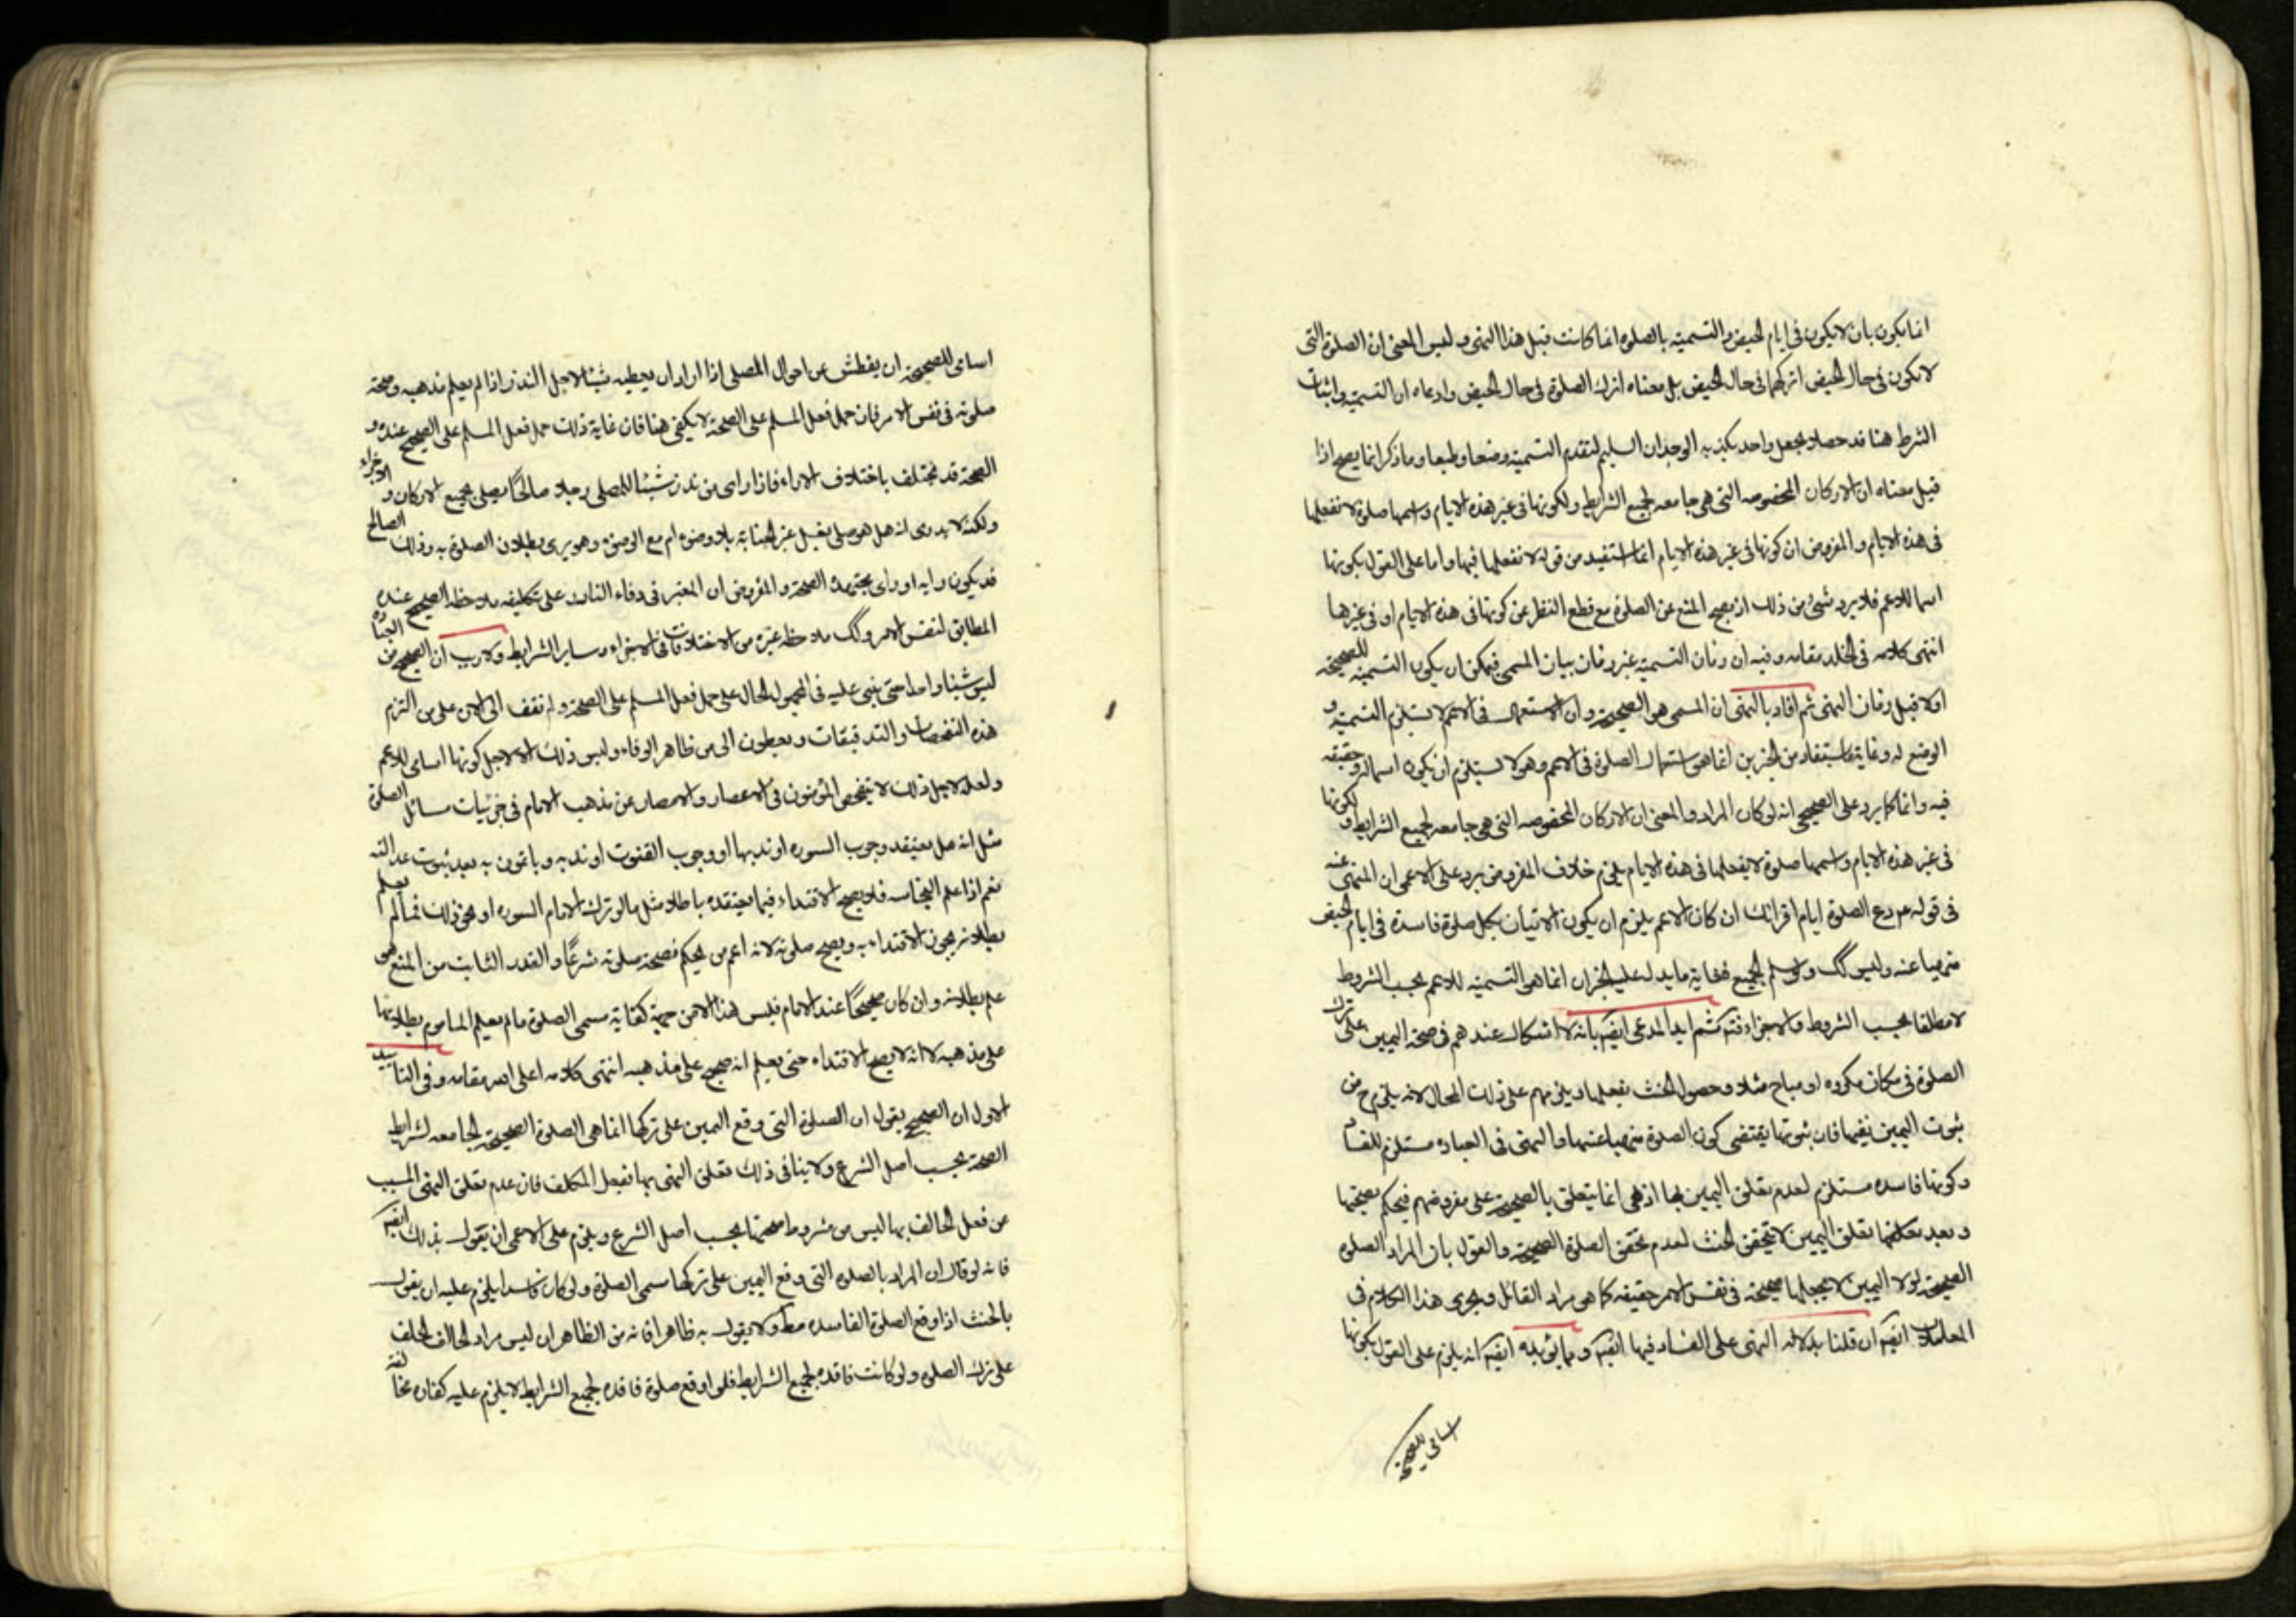 انما يكون بان لا يكون فى ايام الحيض والتسمية بالصلوة انما كانت قبل هذا النهى وليس المعنى ان الصلوة التى
لا تكون فى حال الحيض اتركها فى حال الحيض بل معناه اترك الصلوة فى حال الحيض وادعاء ان التسمية واثبات
الشرط هنا قد حصلا بجعل واحد يكذبه الوجدان السليم لتقدم التسمية وضعا وطبعا وما ذكر انما يصح اذا
قيل معناه ان الاركان المخصوصه التى هى جامعه لجميع الشرايط ولكونها فى غير هذه الايام واسمها صلوة لا تفعلها
فى هذه الايام والمفروض ان كونها فى غير هذه الايام انما استفيد من قوله لا تفعلها فيها واما على القول بكونها
اسما للاعم فلا يرد شئ من ذلك اذ يصح المنع عن الصلوة مع قطع النظر عن كونها فى هذه الايام او فى غيرها
انتهى كلامه فى الخلد مقامه وفيه ان زمان التسمية غير زمان بيان المسمى فيمكن ان يكون التسمية للصحيحة
اولا قبل زمان النهى ثم افاد بالنهى ان المسمى هو الصحيحة وان الاستعمال فى الاعم لا يستلزم التسمية و
الوضع له وغاية ما يستفاد من الخبرين انما هى استعمال الصلوة فى الاعم وهو لا يستلزم ان يكون اسما له وحقيقه
فيه وانما كما يرد على الصحيحى انه لو كان المراد والمعنى ان الاركان المخصوصه التى هى جامعه لجميع الشرايط ولكونها
فى غير هذه الايام واسمها صلوة لا يفعلها فى هذه الايام يلزم خلاف المفروض يرد على الاعمى ان المنهى عنه
فى قوله ع دع الصلوة ايام اقرائك ان كان الاعم يلزم ان يكون الاتيان بكل صلوة فاسدة فى ايام الحيض
منهيا عنه وليس كك ولو سلم الجميع فغاية ما يدل عليه الخبران انما هى التسميه للاعم بحسب الشروط
لا مطلقا بحسب الشروط والاجزاء فتد ثم ايد المدعى ايضا بانه لا اشكال عندهم فى صحة اليمين على ترك
الصلوة فى مكان مكروه او مباح مثلا وحصول الحنث بفعلها ويلزمهم على ذلك المحال لانه يلزم ح من
ثبوت اليمين نفيها فان ثبوتها يقتضى كون الصلوة منهيا عنها والنهى فى العباده مستلزم للفساد
وكونها فاسده مستلزم لعدم تعلق اليمين بها اذ هى انما يتعلق بالصحيحة على مفروضهم فيحكم بصحتها
وبعد تعلقها تعلق اليمين لا يتحقق الحنث لعدم تحقق الصلوة الصحيحة والقول بان المراد الصلوه
الصحيحة لولا اليمين لا يجعلها صحيحة فى نفس الامر حقيقه كما هى مراد القائل ويجرى هذا الكلام فى
المعاملات ايضا ان قلنا بدلالة النهى على الفساد فيها ايضا ومما يؤيده ايضا انه يلزم على القول بكونها
اسامى للصحيحة
اسامى للصحيحة ان يفطش عن احوال المصلى اذا اراد ان يعطيه شيئا لاجل النذر اذا لم يعلم مذهبه وصحة
صلوته فى نفس الامر فان حمل فعل المسلم على الصحة لا يكفى هنا فان غاية ذلك حمل فعل المسلم على الصحيح عنده و
الصحة قد يختلف باختلاف الاراء فاذا راى من نذر شيئا للمصلى رجلا صالحا يصلى بجميع الاركان والاجزاء
ولكنه لا يدرى انه هل هو صلى بغسل غير الجنابة بلا وضوء ام مع الوضوء وهو يرى بطلان الصلوة به وذلك الصالح
قد يكون رايه او راى مجتهده الصحة والمفروض ان المعتبر فى وفاء الناذر على تكليفه ملاحظة الصحيح عنده
المطابق لنفس الامر وكك ملاحظة غيره من الاختلافات فى الاجزاء وساير الشرايط ولا ريب ان الصحيح من العبادة
ليس شيئا واحدا حتى يبنى عليه فى المجهول الحال على حمل فعل المسلم على الصحة ولم نقف الى الان على من التزم
هذه التفحصات والتدقيقات ويعطون الى من ظاهر الوفاء وليس ذلك الا لاجل كونها اسامى للاعم
ولعله لاجل ذلك لا يتفحص المؤمنون فى الاعصار والامصار عن مذهب الامام فى جزئيات مسائل الصلوة
مثل انه هل يعتقد وجوب السوره او ندبها او وجوب القنوت او ندبه وياتمون به بعد ثبوت عدالته
نعم اذا علم المخالفه فلا يصح الاقتداء فيما يعتقده باطلا مثل ما لو ترك الامام السوره او نحو ذلك فما لم يعلم
بطلانه يجوز الاقتداء به ويصح صلوته لانه اعم من يحكم فصحة صلوته شرعا والقدر الثابت من المنع هو
علم بطلانه وان كان صحيحا عند الامام فليس هذا الا من جهة كفاية مسمى الصلوة ما لم يعلم الماموم بطلانها
على مذهبه لا انه لا يصح الاقتداء حتى يعلم انه صحيح على مذهبه انتهى كلامه اعلى الله مقامه وفى التاييد
الاول ان الصحيحى يقول ان الصلوة التى وقع اليمين على تركها انما هى الصلوة الصحيحة الجامعه لشرايط
الصحة بحسب اصل الشرع ولا ينافى ذلك تعلق النهى بها بفعل المكلف فان عدم تعلق النهى المسبب
من فعل الحالف بها ليس من شروط صحتها بحسب اصل الشرع ويلزم على الاعمى ان يقول بذلك ايضا
فانه لو قال ان المراد بالصلوه التى وقع اليمين على تركها مسمى الصلوة ولو كان فاسدا يلزم عليه ان يقول
بالحنث اذا وقع الصلوة الفاسده مط ولا يقول به ظاهرا فانه من الظاهر ان ليس مراد الحالف الحلف
على ترك الصلوه ولو كانت فاقده لجميع الشرايط فلو اوقع صلوة فاقده لجميع الشرايط لا يلزم عليه كفاره مخالفته